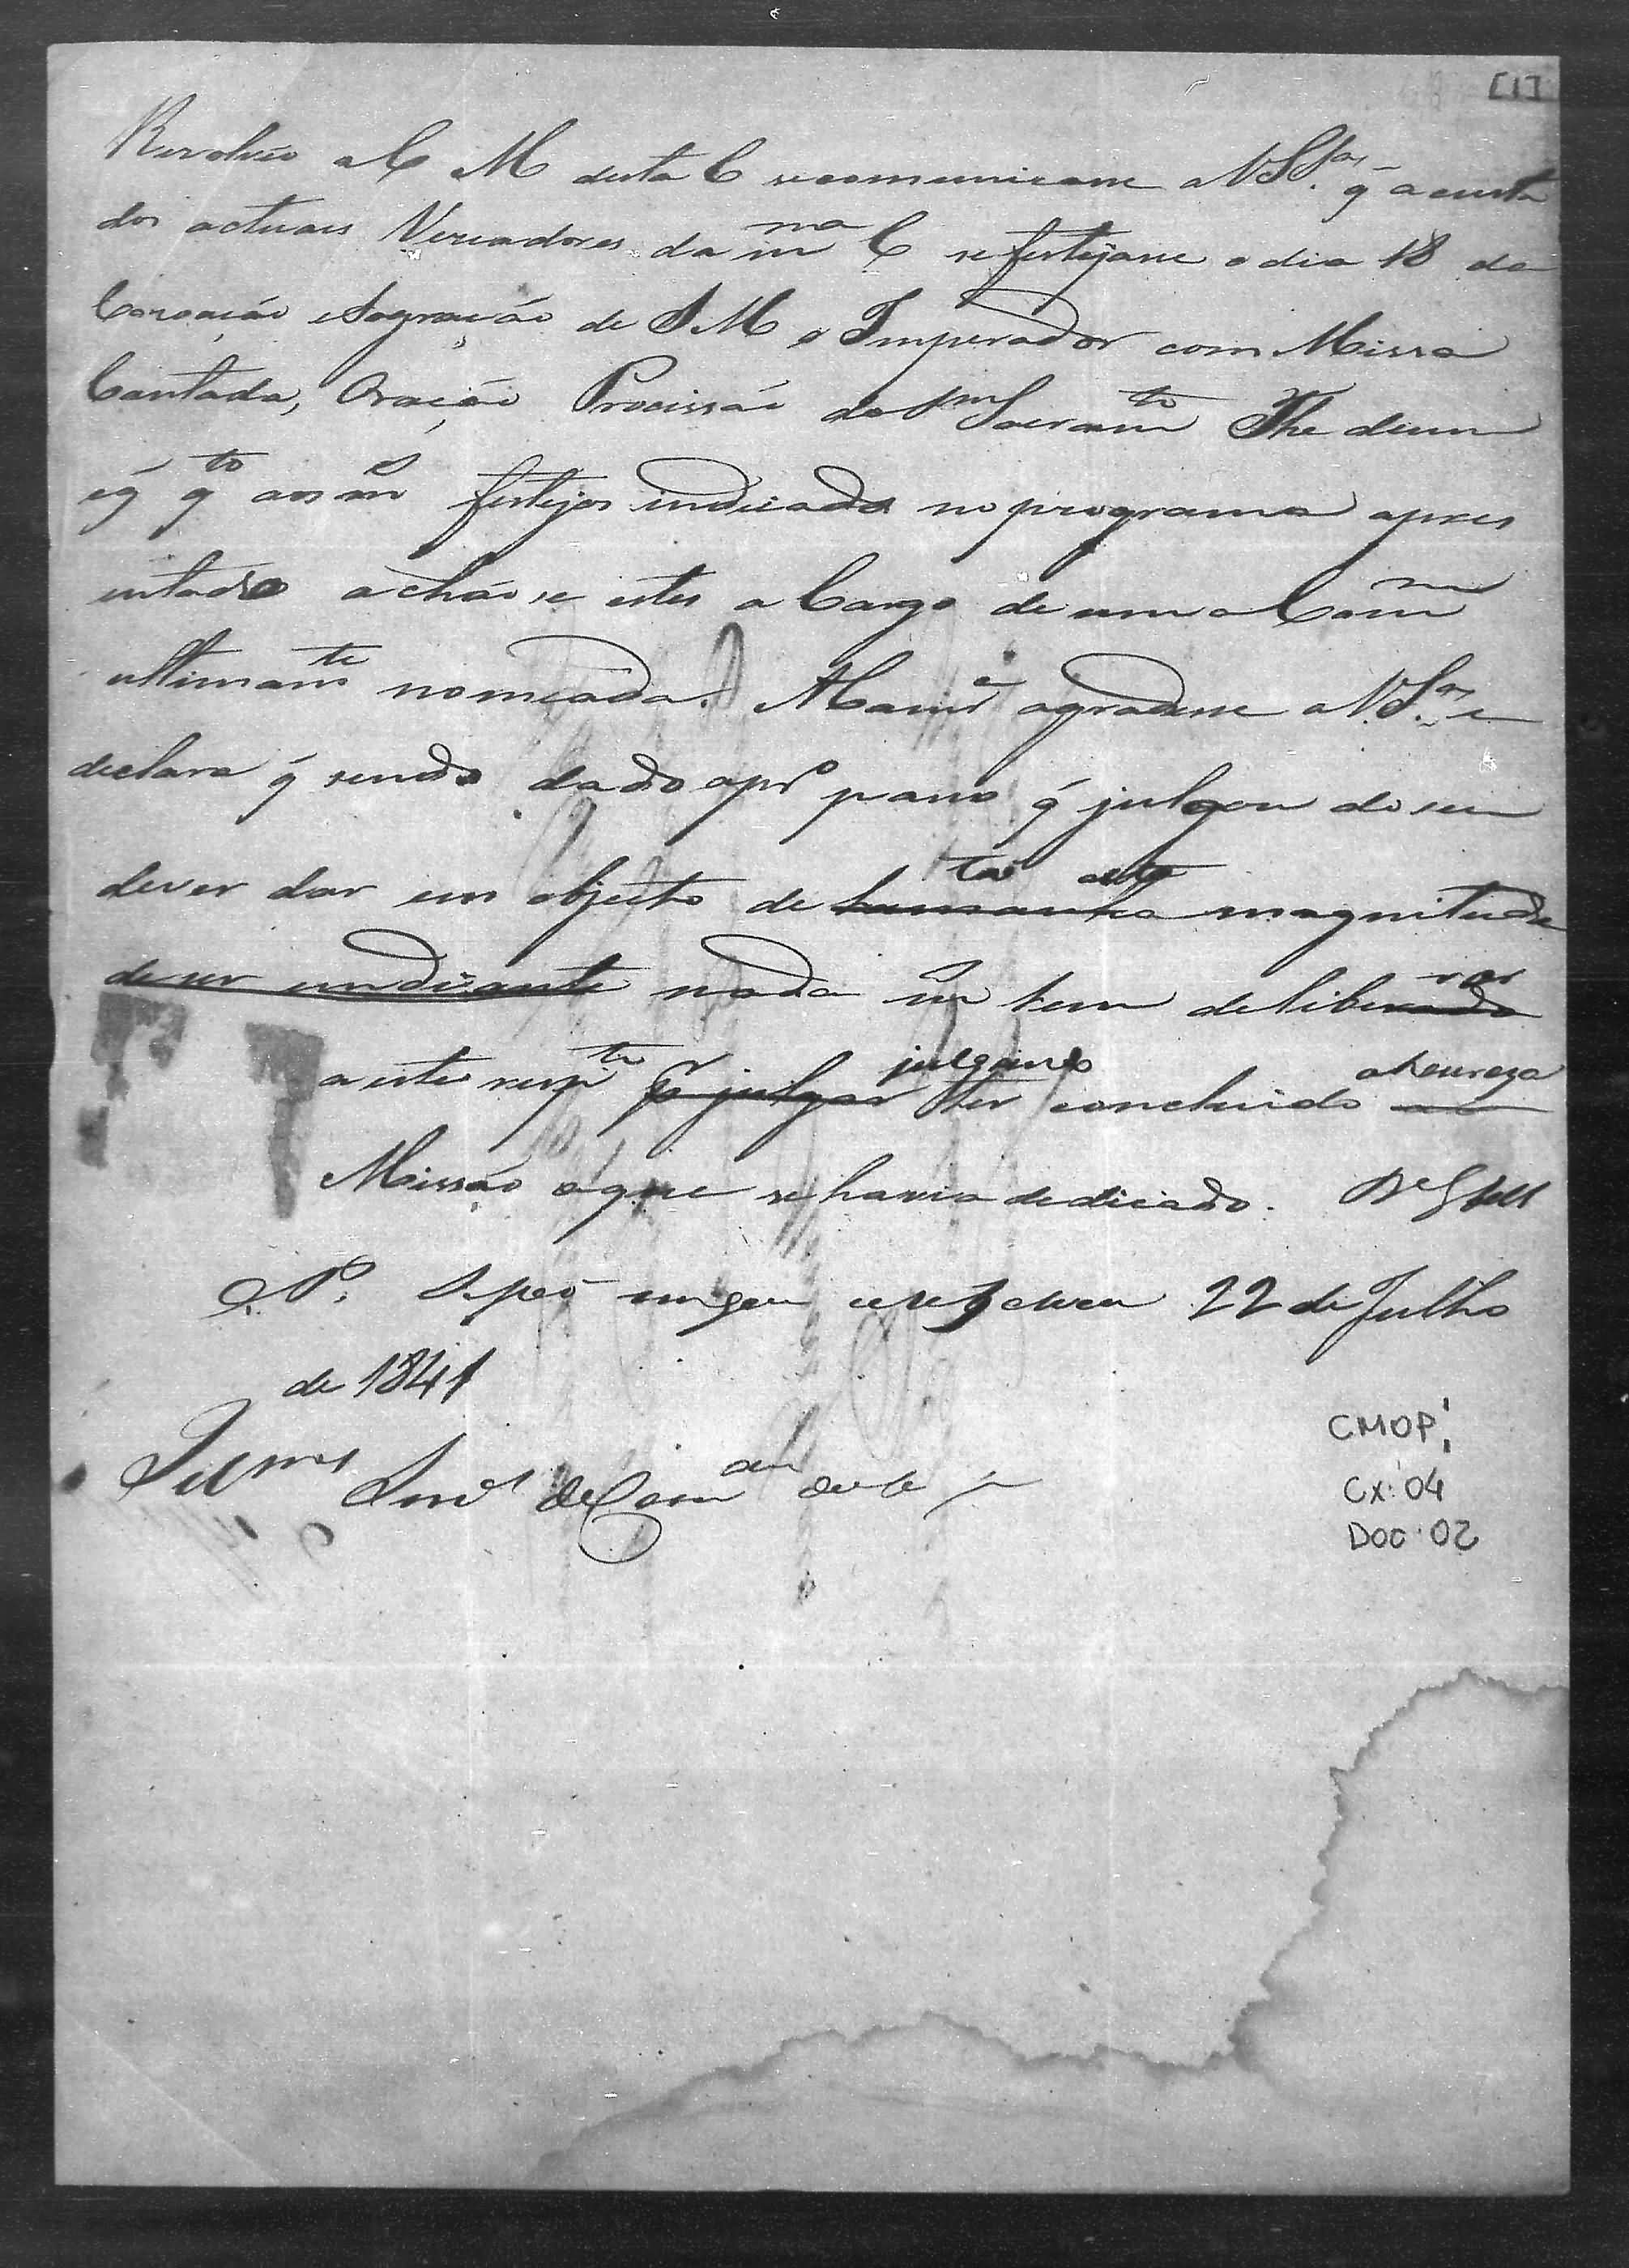 [1]
Resolveo a C M desta C se comunicasse a VSSas q̃ a custa
dos actuaes Vereadores da mma C se festejasse o dia 18 da
Coroação e Sagração de S M o Imperador com Missa
Cantada, Oração Procissão do Sm Sacramto The deum
e q̃ qto aos ms festejos indicados no programa apres
entado achão se estes a Cargo de uma Comm
ultimamte nomeada. A Camr.a agradece a V.Sas e
declara q̃ sendo dado o pro passo q̃ julgou do seu
dever dar em objecto de tamanha magnitude
nada m tem deliberado rar
a este respto julgar julgando ter concluido a honroza
Missão a que se havia dedicado. De G a VSS
O. P. 22 de Julho
de 1841
Illmos Snres da Com am desta
CMOP
Cx: 04
DOC: 02